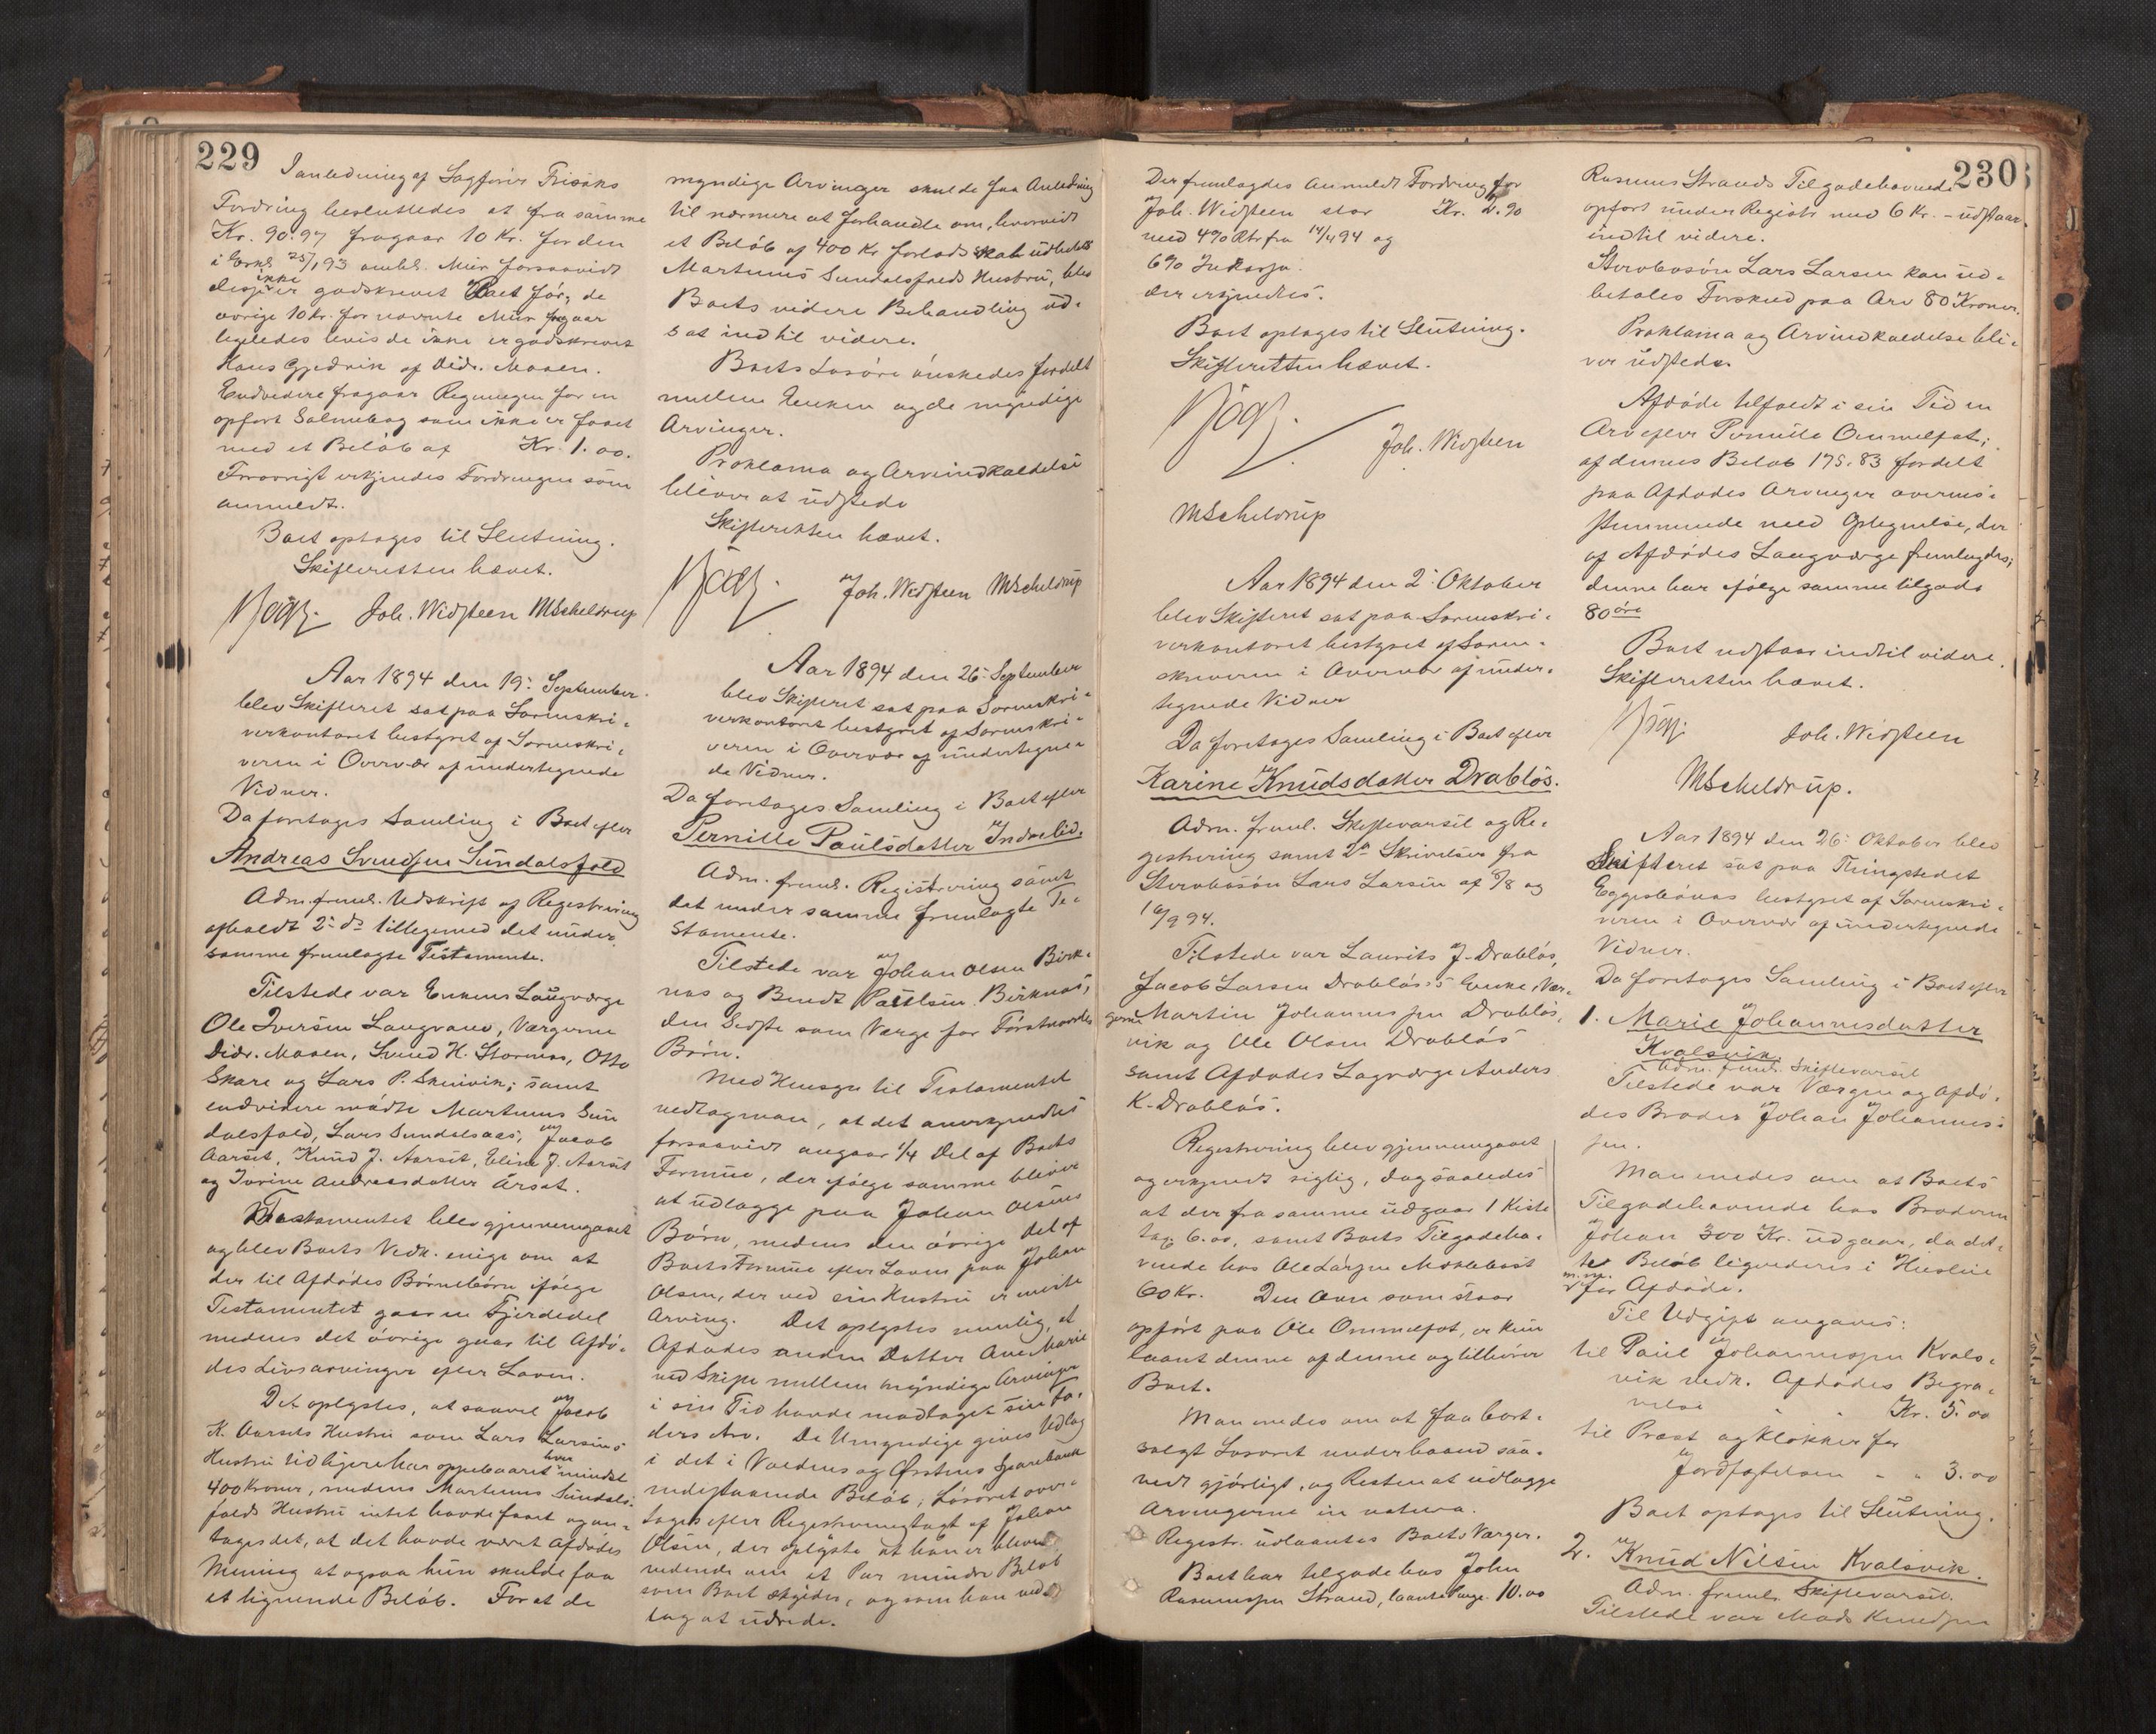 229
I anledning af Sagfører Frisaks
Fordring besluttedes at fra samme
Kr. 90.97 fragaar 10 Kr. for den
i 25/1 93 Mur forsaavidt
ikke
er godskrevet Boet før, de
øvrige 10 Kr. for nævnte Mur fragaar
ligeledes hvis de ikke er godskrevet
Hans Gjedrin af Didr. Moaen.
Endvidere fragaar Regningen for en
opført Salmebog som ikke er faaet
med et Beløb af Kr. 1.00.
Forøvrigt erkjendes Fordringen som
anmeldt.
Boet optages til Slutning.
Skifteretten hævet.
Joh. Widsteen MScheldrup
Aar 1894 den 19: September
blev Skifteret sat paa Sorenskri-
verkontoret bestyret af Sorenskri-
veren i Overvær af undertegnede
Vidner.
Da foretoges Samling i Boet efter
Andreas Svendsen Sundalsfold
Adm. freml. Udskrift af Registrering
afholdt 2: ds tilligemed det under
samme fremlagte Testamente.
Tilstede var Enkens Laugværge
Ole Iversen Langvand, Værgerne
Didr. Moaen, Svend H. Stornes, Otto
Skare og Lars P. Skinvik; samt
endvidere mødte Martinus Sun
dalsfold, Lars Sundalsaas, Jacob
Aarset, Knud J. Aarset, Eline J. Aarset
og Iverine Andreasdatter Arset.
Testamentet blev gjennemgaaet
og blev Boets Vedk. enige om at
der til Afdødes Børnebørn ifølge
Testamentet gaar en Fjerdedel
medens det øvrige gaar til Afdø-
des Livsarvinger efter Loven.
Det oplystes, at saavel Jacob
K. Aarsets Hustru som Lars Larsens
hver
Hustru tidligere har oppebaaret mindst
400 Kroner, medens Martinus Sundals-
folds Hustru intet havde faaet og an-
toges det, at det havde været Afdødes
Mening at ogsaa hun skulde faa
et lignende Beløb. For at de
myndige Arvinger skulde faa Anledning
til nærmere at forhandle om, hvorvidt
et Beløb af 400 Kr forlods skal udbetales
Martinus Sundalsfolds Hustru, blev
Boets videre Behandling ud-
sat indtil videre.
Boets Løsøre ønskedes fordelt
mellem Enken og de myndige
Arvinger.
Proklama og Arveindkaldelse
bliver at udstede
Skifteretten hævet.
Joh. Widsteen MScheldrup
Aar 1894 den 26: September
blev Skifteret sat paa Sorenskri-
verkontoret bestyret af Sorenskri-
veren i Overvær af undertegne-
de Vidner.
Da foretoges Samling i Boet efter
Pernille Paulsdatter Indrelid.
Adm. freml. Registrering samt
det under samme fremlagte Te-
stamente.
Tilstede var Johan Olsen Birk-
nes og Bendt Paulsen Birknes,
den Sidste som Værge for Førstnævntes
Børn.
Med Hensyn til Testamentet
vedtog man, at det anerkjendtes
forsaavidt angaar 1/4 Del af Boets
Formue, der ifølge samme bliver
at udlægge paa Johan Olsens
Børn, medens den øvrige Del af
Boets Formue efter Loven paa Johan
Olsen, der ved sin Hustru er eneste
Arving. Det oplystes nemlig, at
Afdødes anden Datter Ane Marie
ved Skifte mellem myndige Arvinger
i sin Tid havde modtaget sin Fa-
ders Arv. De Umyndige gives Udlæg
i det i Voldens og Ørstens Sparebank
indestaaende Beløb; Løsøret over-
tages efter Registreringstaxt af Johan
Olsen, der oplyste at han er bleven
vidende om et Par mindre Beløb
som Boet skylder, og som han ved-
tog at udrede.
Der fremlagdes anmeldt Fordring for
Joh. Widsteen stor Kr. 2.90
med 4% Rtr fra 14/4 94 og
6% Inkasso.
der erkjendtes.
Boet optages til Slutning.
Skifteretten hævet.
Joh. Widsteen
MScheldrup
Aar 1894 den 2: Oktober
blev Skifteret sat paa Sorenskri-
verkontoret bestyret af Soren-
skriveren i Overvær af under-
tegnede Vidner
Da foretoges Samling i Boet efter
Karine Knudsdatter Drabløs.
Adm. freml. Skiftevarsel og Re-
gistrering samt 2de Skrivelser fra
Sterbosøn Lars Larsen af /8 og
16/9 94.
Tilstede var Laurits J. Drabløs,
Jacob Larsen Drabløs's Enke, Vær-
gerne Martin Johannessen Drabløs,
vik og Ole Olsen Drabløs
samt Afdødes Lagværge Anders
K. Drabløs.
Registrering blev gjennemgaaet
og erkjendt rigtig, dog saaledes
at der fra samme udgaar 1 Kiste
tax. 6.00, samt Boets Tilgodeha-
vende hos Ole Larsen Meklebost
60 Kr. Den Ovn som staar
opført paa Ole Ommelfot, er kun
laant denne af denne og tilhører
Boet.
Man enedes om at faa bort-
solgt Løsøret underhaanden saa-
vidt gjørligt, og Resten at udlægge
Arvingerne in natura.
Registr. udlaantes Boets Værger.
Boet har tilgode hos John
Rasmussen Strand, laante Penge 10.00
230
Rasmus Strands Tilgodehavende
opført under Registr med 6 Kr. - udstaar
indtil videre.
Sterbosøn Lars Larsen kan ud-
betales Forskud paa Arv 80 Kroner.
Proklama og Arveindkaldelse bli-
ver udstede.
Afdøde tilfaldt i sin Tid en
Arv efter Pernille Ommelfot;
af dennes Beløb 175.83 fordelt
paa Afdødes Arvinger overens-
stemmende med Opgivelse, der
af Afdødes Laugværge fremlagdes;
denne har ifølge samme tilgode
80 øre
Boet udstaar indtil videre.
Skifteretten hævet.
Joh. Widsteen
MScheldrup.
Aar 1894 den 26: Oktober blev
Skifteret sat paa Thingstedet
Eggesbønes bestyret af Sorenskri-
veren i Overvær af undertegnede
Vidner.
Da foretoges Samling i Boet efter
1. Marie Johannesdatter
Kvalsvik.
Adm. freml. Skiftevarsel
Tilstede var Værgen og Afdø-
des Broder Johan Johannes-
sen.
Man enedes om at Boets
Tilgodehavende hos Broderen
Johan 300 Kr. udgaar, da det-
te Beløb ligvideres i Husleie
m.m.
for Afdøde.
Til Udgift angaves:
til Paul Johannessen Kvals-
vik vedk. Afdødes Begra-
velse Kr. 5.00
til Præst og Klokker for
Jordfæstelsen - " 3.00
Boet optages til Slutning.
2. Knud Nilsen Kvalsvik.
Adm. freml. Skiftevarsel.
Tilstede var Mads Knudsen